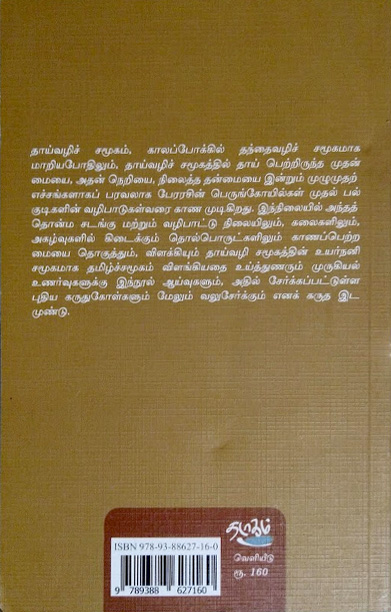 தாய்வழிச் சமூகம், காலப்போக்கில் தந்தைவழிச் சமூகமாக
மாறியபோதிலும், தாய்வழிச் சமூகத்தில் தாய் பெற்றிருந்த முதன்
மையை, அதன் நெறியை, நிலைத்த தன்மையை இன்றும் முழுமுதற்
எச்சங்களாகப் பரவலாக பேரரசின் பெருங்கோயில்கள் முதல் பல்
குடிகளின் வழிபாடுகள்வரை காண முடிகிறது. இந்நிலையில் அந்தத்
தொன்ம சடங்கு மற்றும் வழிபாட்டு நிலையிலும், கலைகளிலும்,
அகழ்வுகளில் கிடைக்கும் தொல்பொருட்களிலும் காணப்பெற்ற
மையை தொகுத்தும், விளக்கியும் தாய்வழி சமூகத்தின் உயர்நனி
சமூகமாக தமிழ்ச்சமூகம் விளங்கியதை உய்த்துணரும் முருகியல்
உணர்வுகளுக்கு இந்நூல் ஆய்வுகளும், அதில் சேர்க்கப்பட்டுள்ள
புதிய கருதுகோள்களும் மேலும் வலுசேர்க்கும் எனக் கருத இட
முண்டு.
தமுகம்
வெளியீடு
ரூ. 160
ISBN 978-93-88627-16-0
9 789388 627160